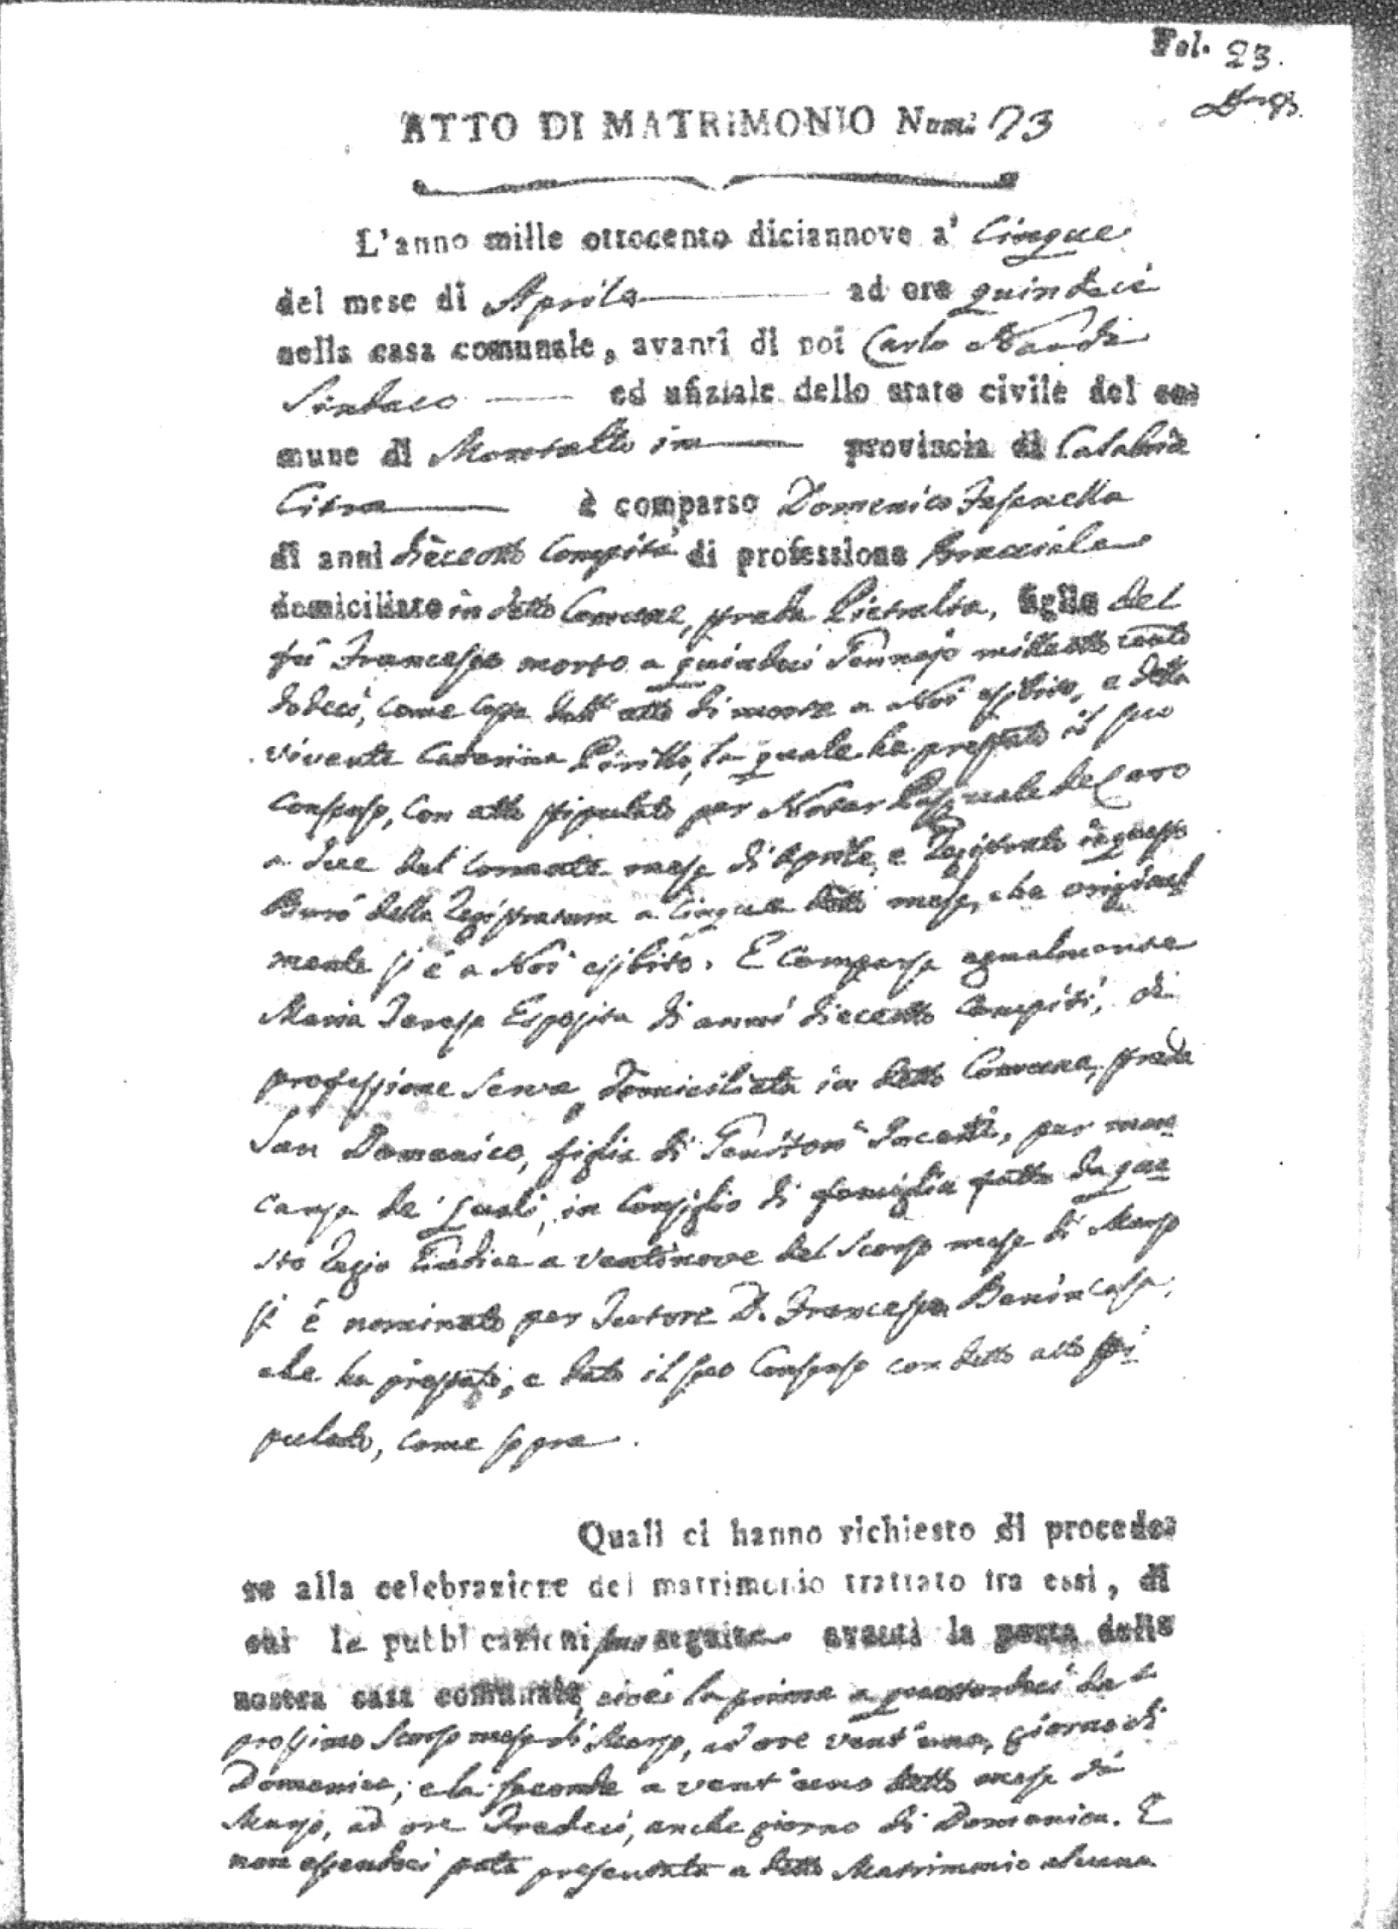 Fol. 23.
ATTO DI MATRIMONIO Num: 23
L'anno mille ottocento diciannove a' Cinque
del mese di Aprile ad ore quindeci
nella casa comunale, avanti di noi Carlo Nardi
Sindaco ed ufiziale dello stato civile del co-
mune di Montalto in provincia di Calabria
Citra è comparso Domenico Fasanella
di anni dieceotto compiti di professione bracciale
domiciliato in detto Comune, strada Pietralta, figlio del
fù Francesco morto a quindeci Gennajo mille otto cento
dodeci, come costa dall' atto di morte a Noi esibito, e della
vivente Caterina Pirillo, la quale ha prestato il suo
consenso, con atto stipulato per Notar Pasquale de Caro
a due del corrente mese di Aprile, e registrato in questo
Burò della registratura a Cinque detto mese, che original
mente si è a Noi esibito. E comparsa egualmente
Maria Teresa Esposita di anni dieceotto compiti, di
professione serva, domiciliata in detto Comune, strada
San Domenico, figlia di Genitori incerti, per man
canza de' quali, in Consiglio di famiglia fatto da que=
sto Regio Giudice a ventinove del scorso mese di Marzo
si è nominato per Tutore D. Francesco Benincasa,
che ha prestato, e dato il suo consenso con detto atto sti=
pulato, come sopra.
Quali ci hanno richiesto di procede-
re alla celebrazione del matrimonio trattato fra essi, di
cui le pubblicazioni son seguite avanti la porta della
nostra casa comunale, cioè: la prima a quattordeci del
prossimo scorso mese di Marzo, ad ore vent'una, giorno di
Domenica; e la seconda a vent'uno detto mese di
Marzo, ad ore tredeci, anche giorno di Domenica. E
non essendoci stata presentata a detto Matrimonio alcuna